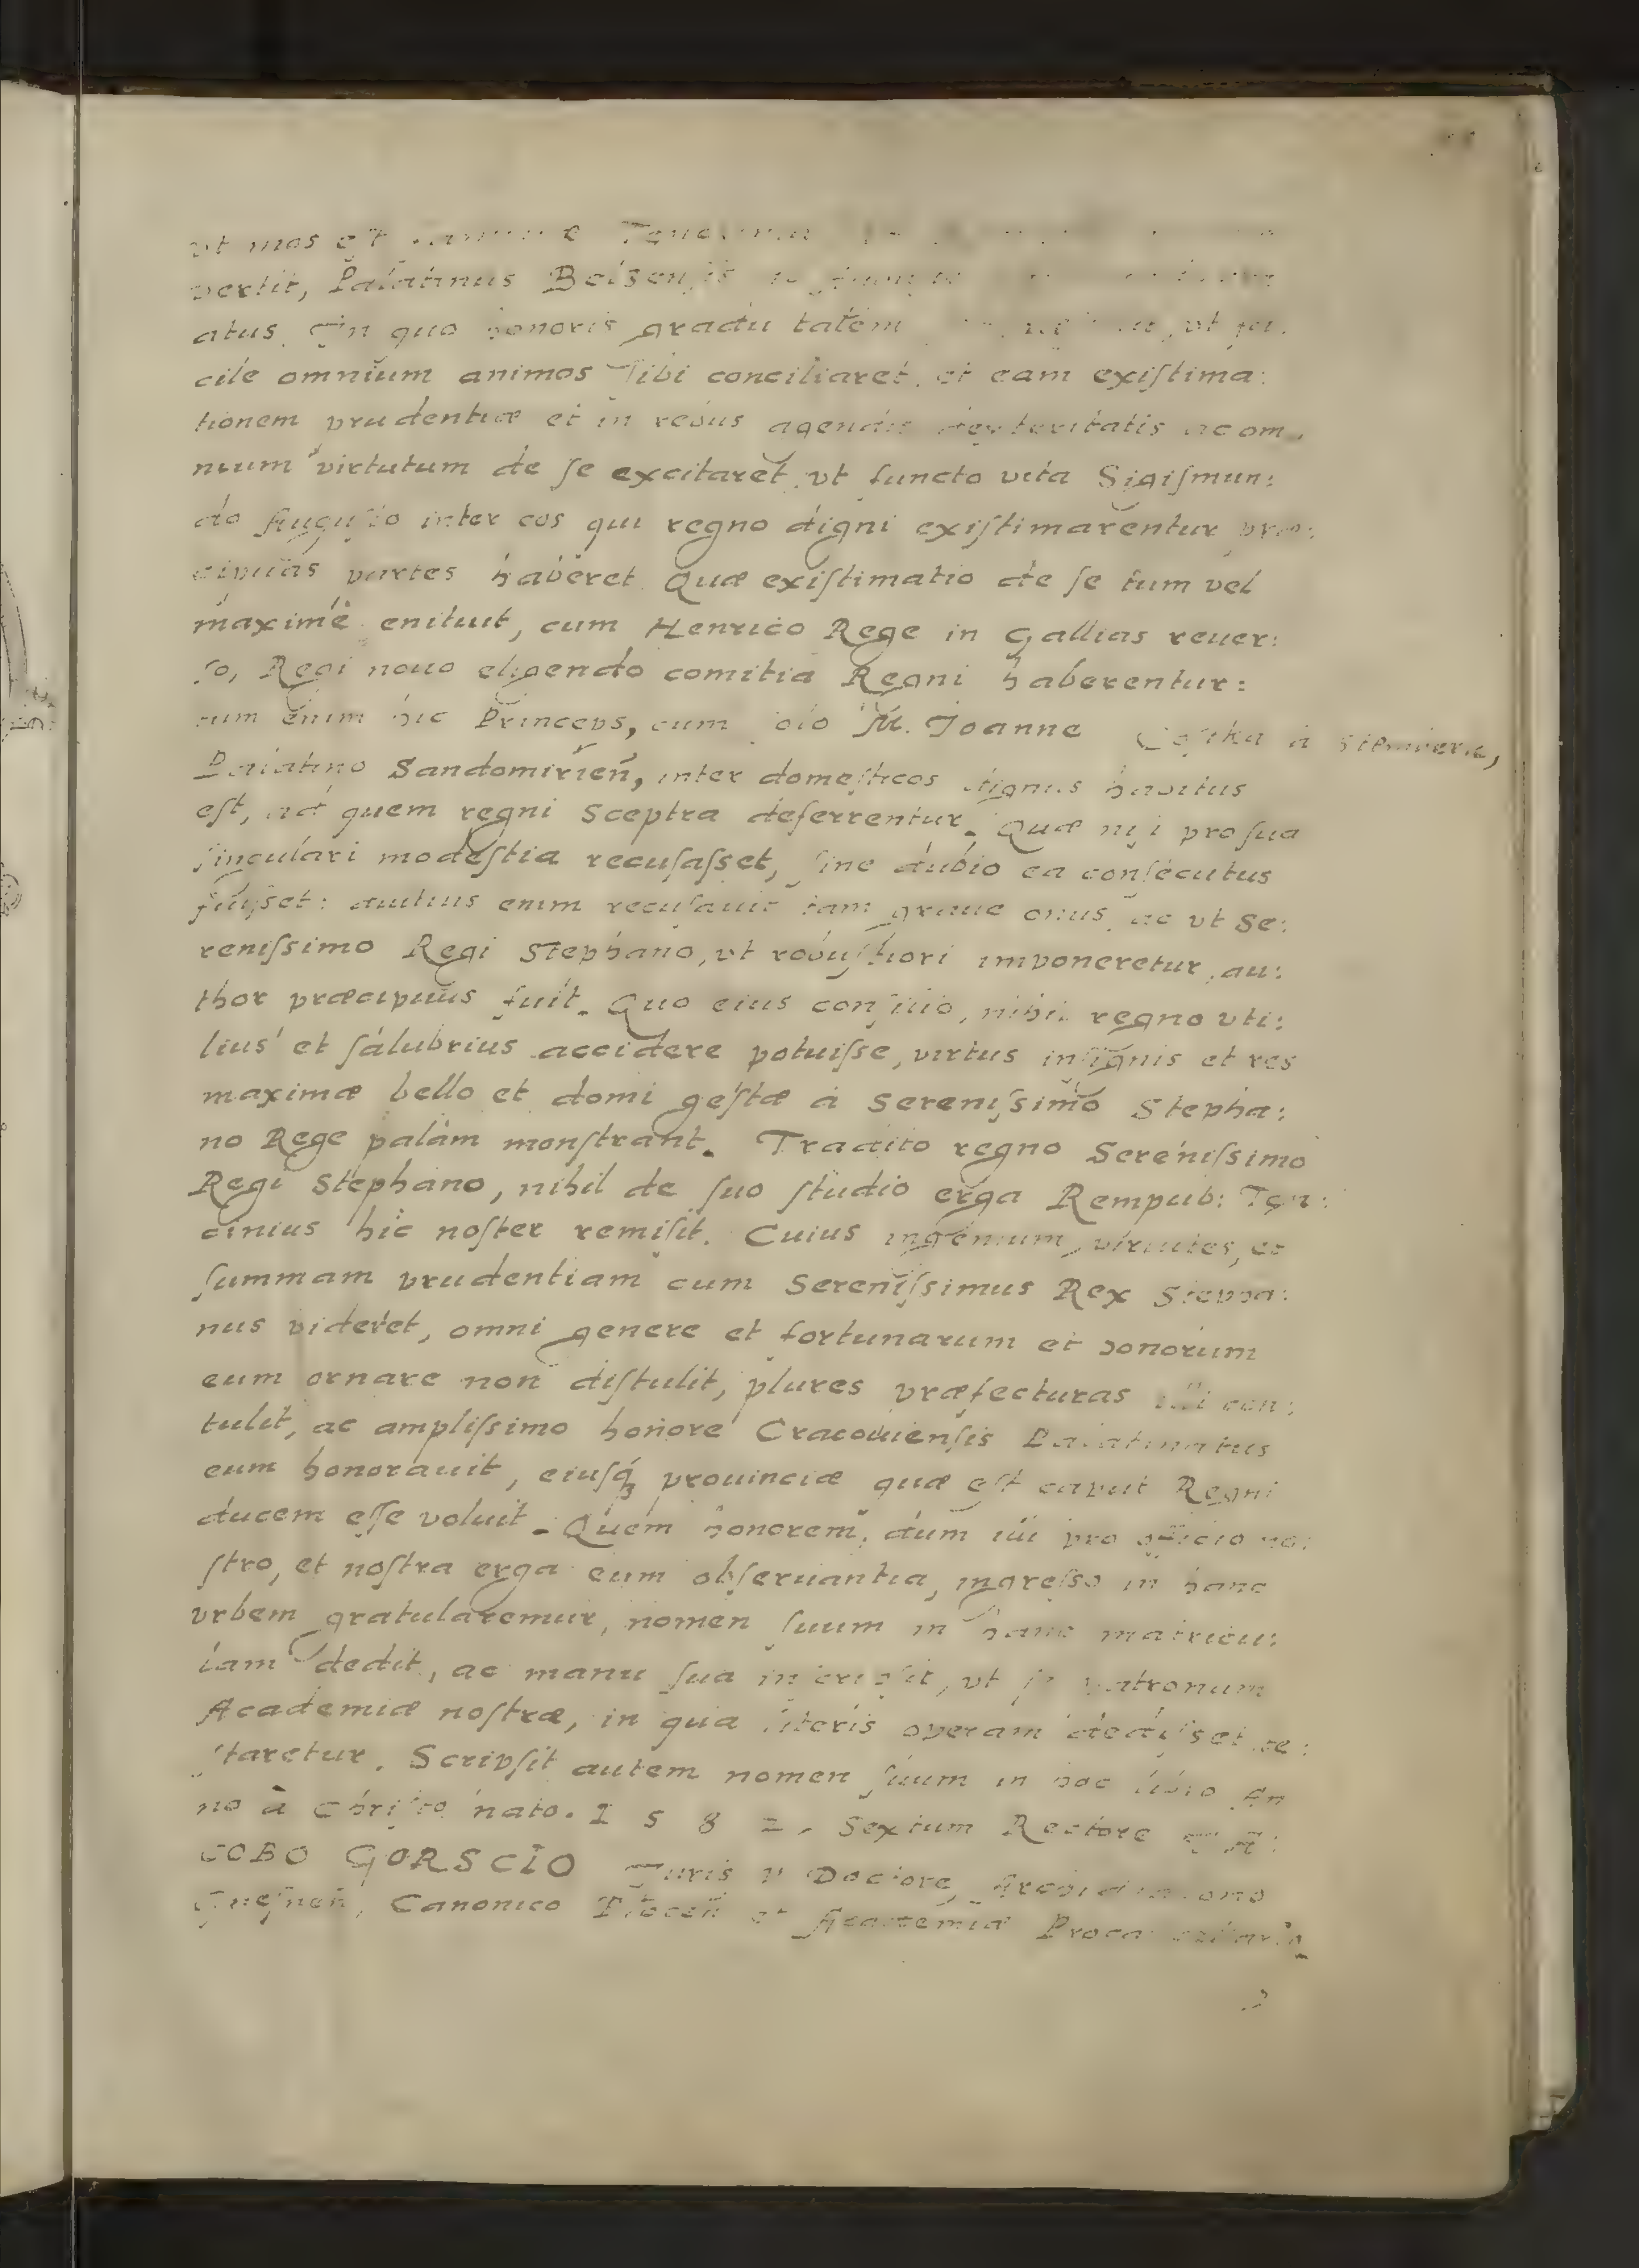 ut mos est
vertit, Palatinus Belzensis
atus. In quo honoris gradu talem ut fa:
cile omnium animos sibi conciliaret, et eam exiſtima:
tionem prudentiæ et in rebus agendis dexteritatis ac om,
nium virtutum de ſe excitaret, vt functo vita Sigiſmun:
do Auguſto inter eos qui regno digni exiſtimarentur præ:
cipuas partes haberet. Quæ exiſtimatio de ſe tum vel
maximè enituit, cum Henrico Rege in Gallias reuer:
ſo, Regi nouo eligendo comitia Regni haberentur:
tum enim hic Princeps, cum M. Joanne Coſtka à
Palatino Sandomirien̄, inter domeſticos dignus habitus
eſt, ad quem regni Sceptra deferrentur. Quæ niſi pro ſua
ſingulari modeſtia recuſaſset, ſine dubio ea conſecutus
fuiſset: enim recuſauit tam graue onus, ac vt Se:
reniſsimo Regi Stephano, vt robuſtiori imponeretur, au:
thor præcipuus fuit. Quo eius conſilio, nihil regno vti:
lius et ſalubrius accidere potuiſse, virtus inſignis et res
maximæ bello et domi geſtæ à Sereniſsimo Stepha:
no Rege palàm monſtrant. Tradito regno Sereniſsimo
Regi Stephano, nihil de ſuo ſtudio erga Rempub: Ten:
cinius hic noſter remiſit. Cuius ingenium, virtutes, et
ſummam prudentiam cum Sereniſsimus Rex Stepha:
nus videret, omni genere et fortunarum et honorum
eum ornare non diſtulit, plures præfecturas illi con:
tulit, ac ampliſsimo honore Cracouienſis Palatinatus
eum honorauit, eiuſq́ꝫ prouinciæ quæ eſt caput Regni
ducem eſſe voluit. Quem honorem, dum illi pro officio no:
ſtro, et noſtra erga eum obſeruantia, ingreſso in hanc
vrbem gratularemur, nomen ſuum in hanc matricu:
lam dedit, ac manu ſua inſcripſit, vt ſe patronum
Academiæ noſtræ, in qua literis operam dediſset, te:
ſtaretur. Scripſit autem nomen ſuum in hoc libro An
no à Chriſto nato. 1 5 8 2, Sextum Rectore IA:
COBO GORSCIO Iuris V Doctore, Archidiacono
Gneſnen̄, Canonico Plocen̄ et Academiæ Procancellario.